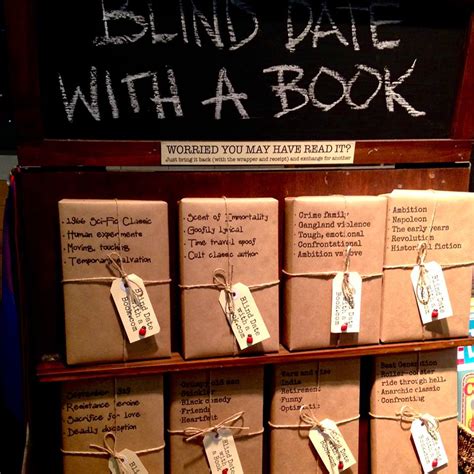 BLIND DATE
WITH A BOOK
WORRIED YOU MAY HAVE READ IT?
Just bring it back (with the wrapper and receipt) and exchange for another
1966 Sci-Fi Classic
Human experiments
Moving, touching
Temporary salvation
Blind Date
with a
Book.com
Scent of Immortality
Goofily lyrical
Time travel spoof
Cult classic author
Blind Date
with a
Crime family
Gangland violence
Tough, emotional
Confrontational
Ambition
Blind Date
with a
Ambition
Napoleon
The early years
Revolution
Historical fiction
Blind Date
with a
September
Resistance heroine
Sacrifice for love
Deadly deception
Blind Date
with a
Black comedy
Friends
Heartfelt
Blind Date
with a
India
Retirement
Funny
Blind Date
with a
Beat Generation
Roller-coaster
ride through hell
Anarchic classic
Blind Date
with a